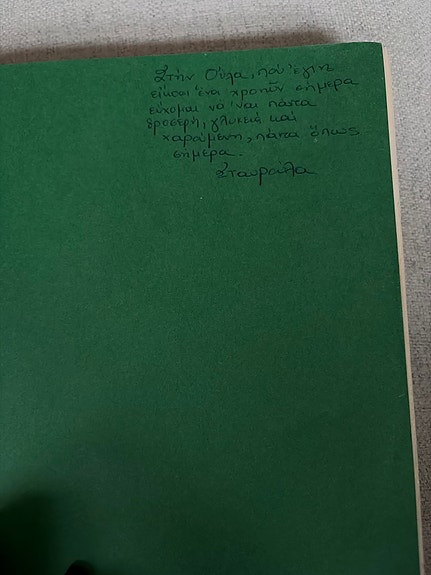 Στὴν Οὔλα, ποὺ ἔγινε
εἴκοσι ἕνα χρονῶν σήμερα
εὔχομαι νὰ 'ναι πάντα
δροσερή, γλυκειὰ καὶ
χαρούμενη, πάντα ὅπως
σήμερα.
Σταυρούλα